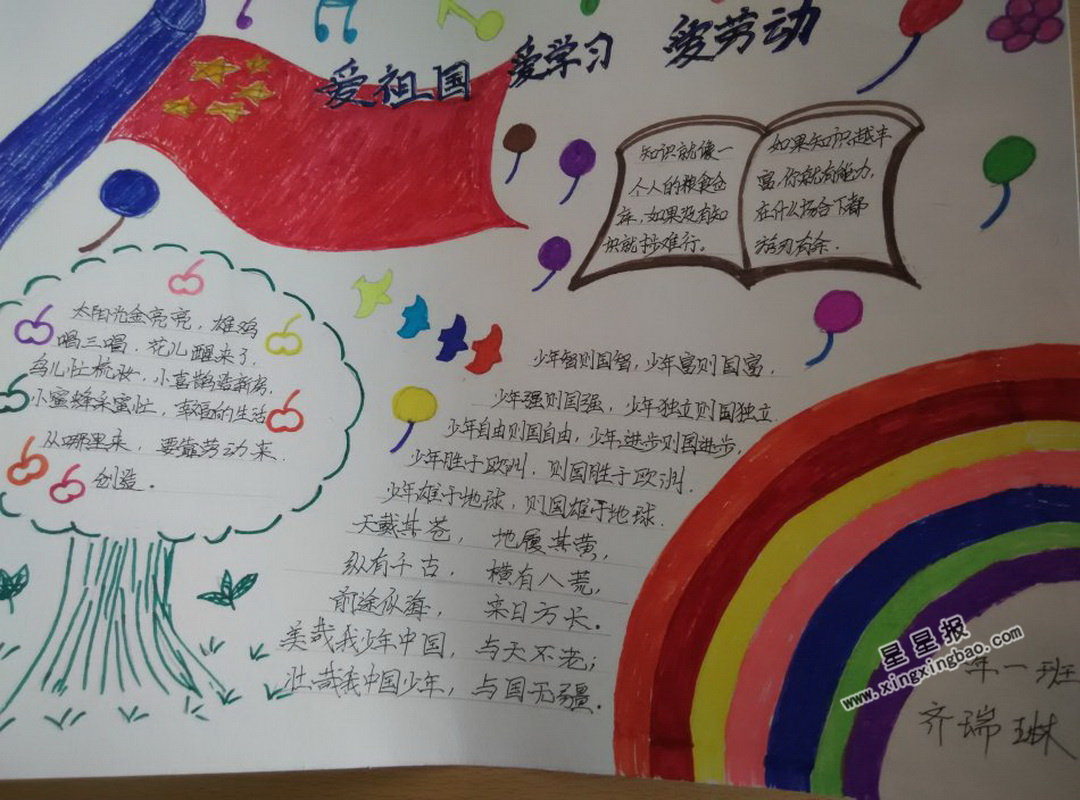 爱祖国 爱学习 爱劳动
知识就像一
个人的粮食仓
库,如果没有知
识就寸步难行。
如果知识越丰
富,你就有能力,
在什么场合下都
游刃有余.
太阳光金亮亮,雄鸡
唱三唱,花儿醒来了,
鸟儿忙梳妆,小喜鹊造新房,
小蜜蜂采蜜忙,幸福的生活
从哪里来,要靠劳动来
创造.
少年智则国智,少年富则国富,
少年强则国强,少年独立则国独立.
少年自由则国自由,少年进步则国进步,
少年胜于欧洲,则国胜于欧洲,
少年雄于地球,则国雄于地球.
天戴其苍,地履其黄,
纵有千古,横有八荒,
前途似海,来日方长.
美哉我少年中国,与天不老;
壮哉我中国少年,与国无疆.
星星报
www.xingxingbao.com
年一班
齐瑞琳